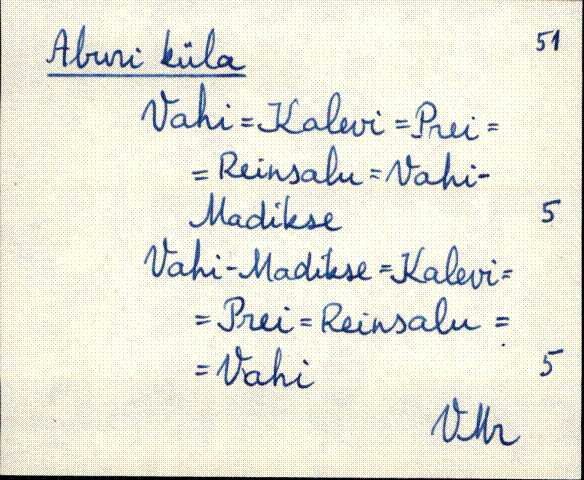 Aburi küla 51
Vahi = Kalevi = Prei =
= Reinsalu = Vahi-
Madikse 5
Vahi-Madikse = Kalevi =
= Prei = Reinsalu =
= Vahi 5
VMr